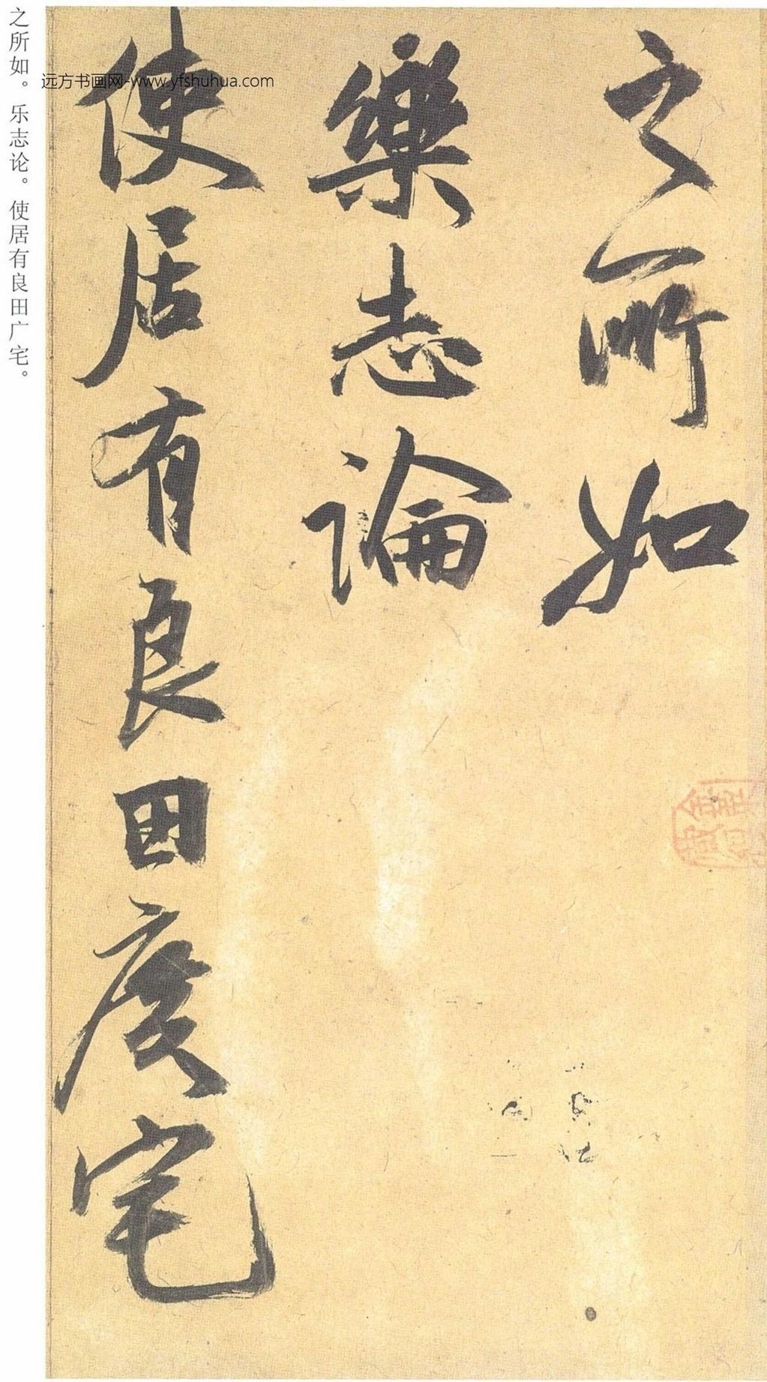 之所如
樂志論
使居有良田廣宅
之所如。乐志论。使居有良田广宅。
远方书画网-www.yfshuhua.com